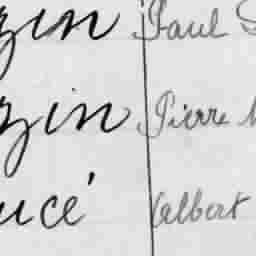 zin Paul
zin Pierre
ucé Albert